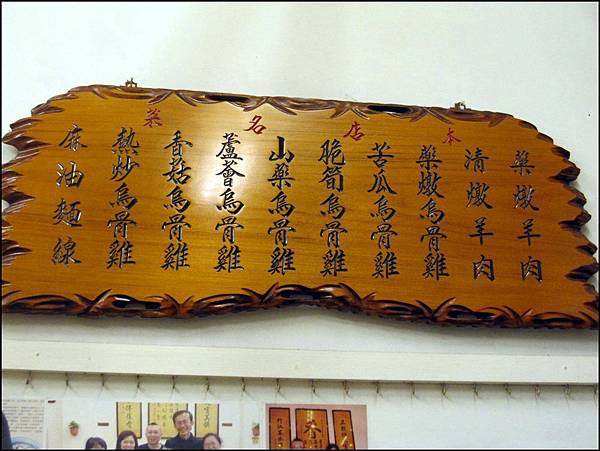 本店名菜
藥燉羊肉
清燉羊肉
藥燉烏骨雞
苦瓜烏骨雞
脆筍烏骨雞
山藥烏骨雞
蘆薈烏骨雞
香菇烏骨雞
熱炒烏骨雞
麻油麵線